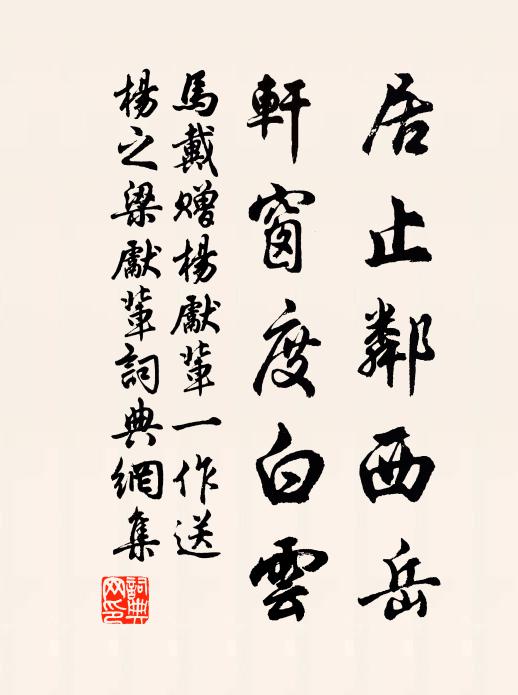 居止鄰西岳
軒窗度白雲
馬戴贈楊獻輩一作送
楊之梁獻輩詞典網集
詞典
网印